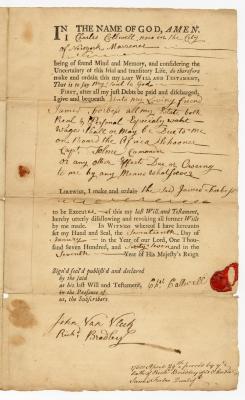 IN THE NAME OF GOD, AMEN.
I Charles Cattwell now in the City
of Newyork Marriner
being of sound Mind and Memory, and considering the
Uncertainty of this frail and transitory Life, do therefore
make and ordain this my LAST WILL AND TESTAMENT,
That is to say My Soul to God
First, after all my just Debts be paid and discharged,
I give and bequeath Unto my Loving friend
James Forbes all my Estate both
Real & Personal Especially what
Wages Shall or may be Due to me
on Board the Africa Schooner
Capt. Commander
or any other Part Due or Oweing
to me by any Means Whatsoever
LIKEWISE, I make and ordain the said James Forbes
to be EXECUTOR of this my last Will and Testament,
hereby utterly disallowing and revoking all former Wills
by me made. IN WITNESS whereof I have hereunto
set my Hand and Seal, the Seventeenth Day of
January in the Year of our Lord, One Thou-
sand Seven Hundred, and Sixty and in the
Year of His Majesty's Reign
Sign'd seal'd publish'd and declared
by the said
as his last Will and Testament,
in the Presence of
us, the Subscribers
Chs. Cattwell
John Van Vleck
Richd. Bradley